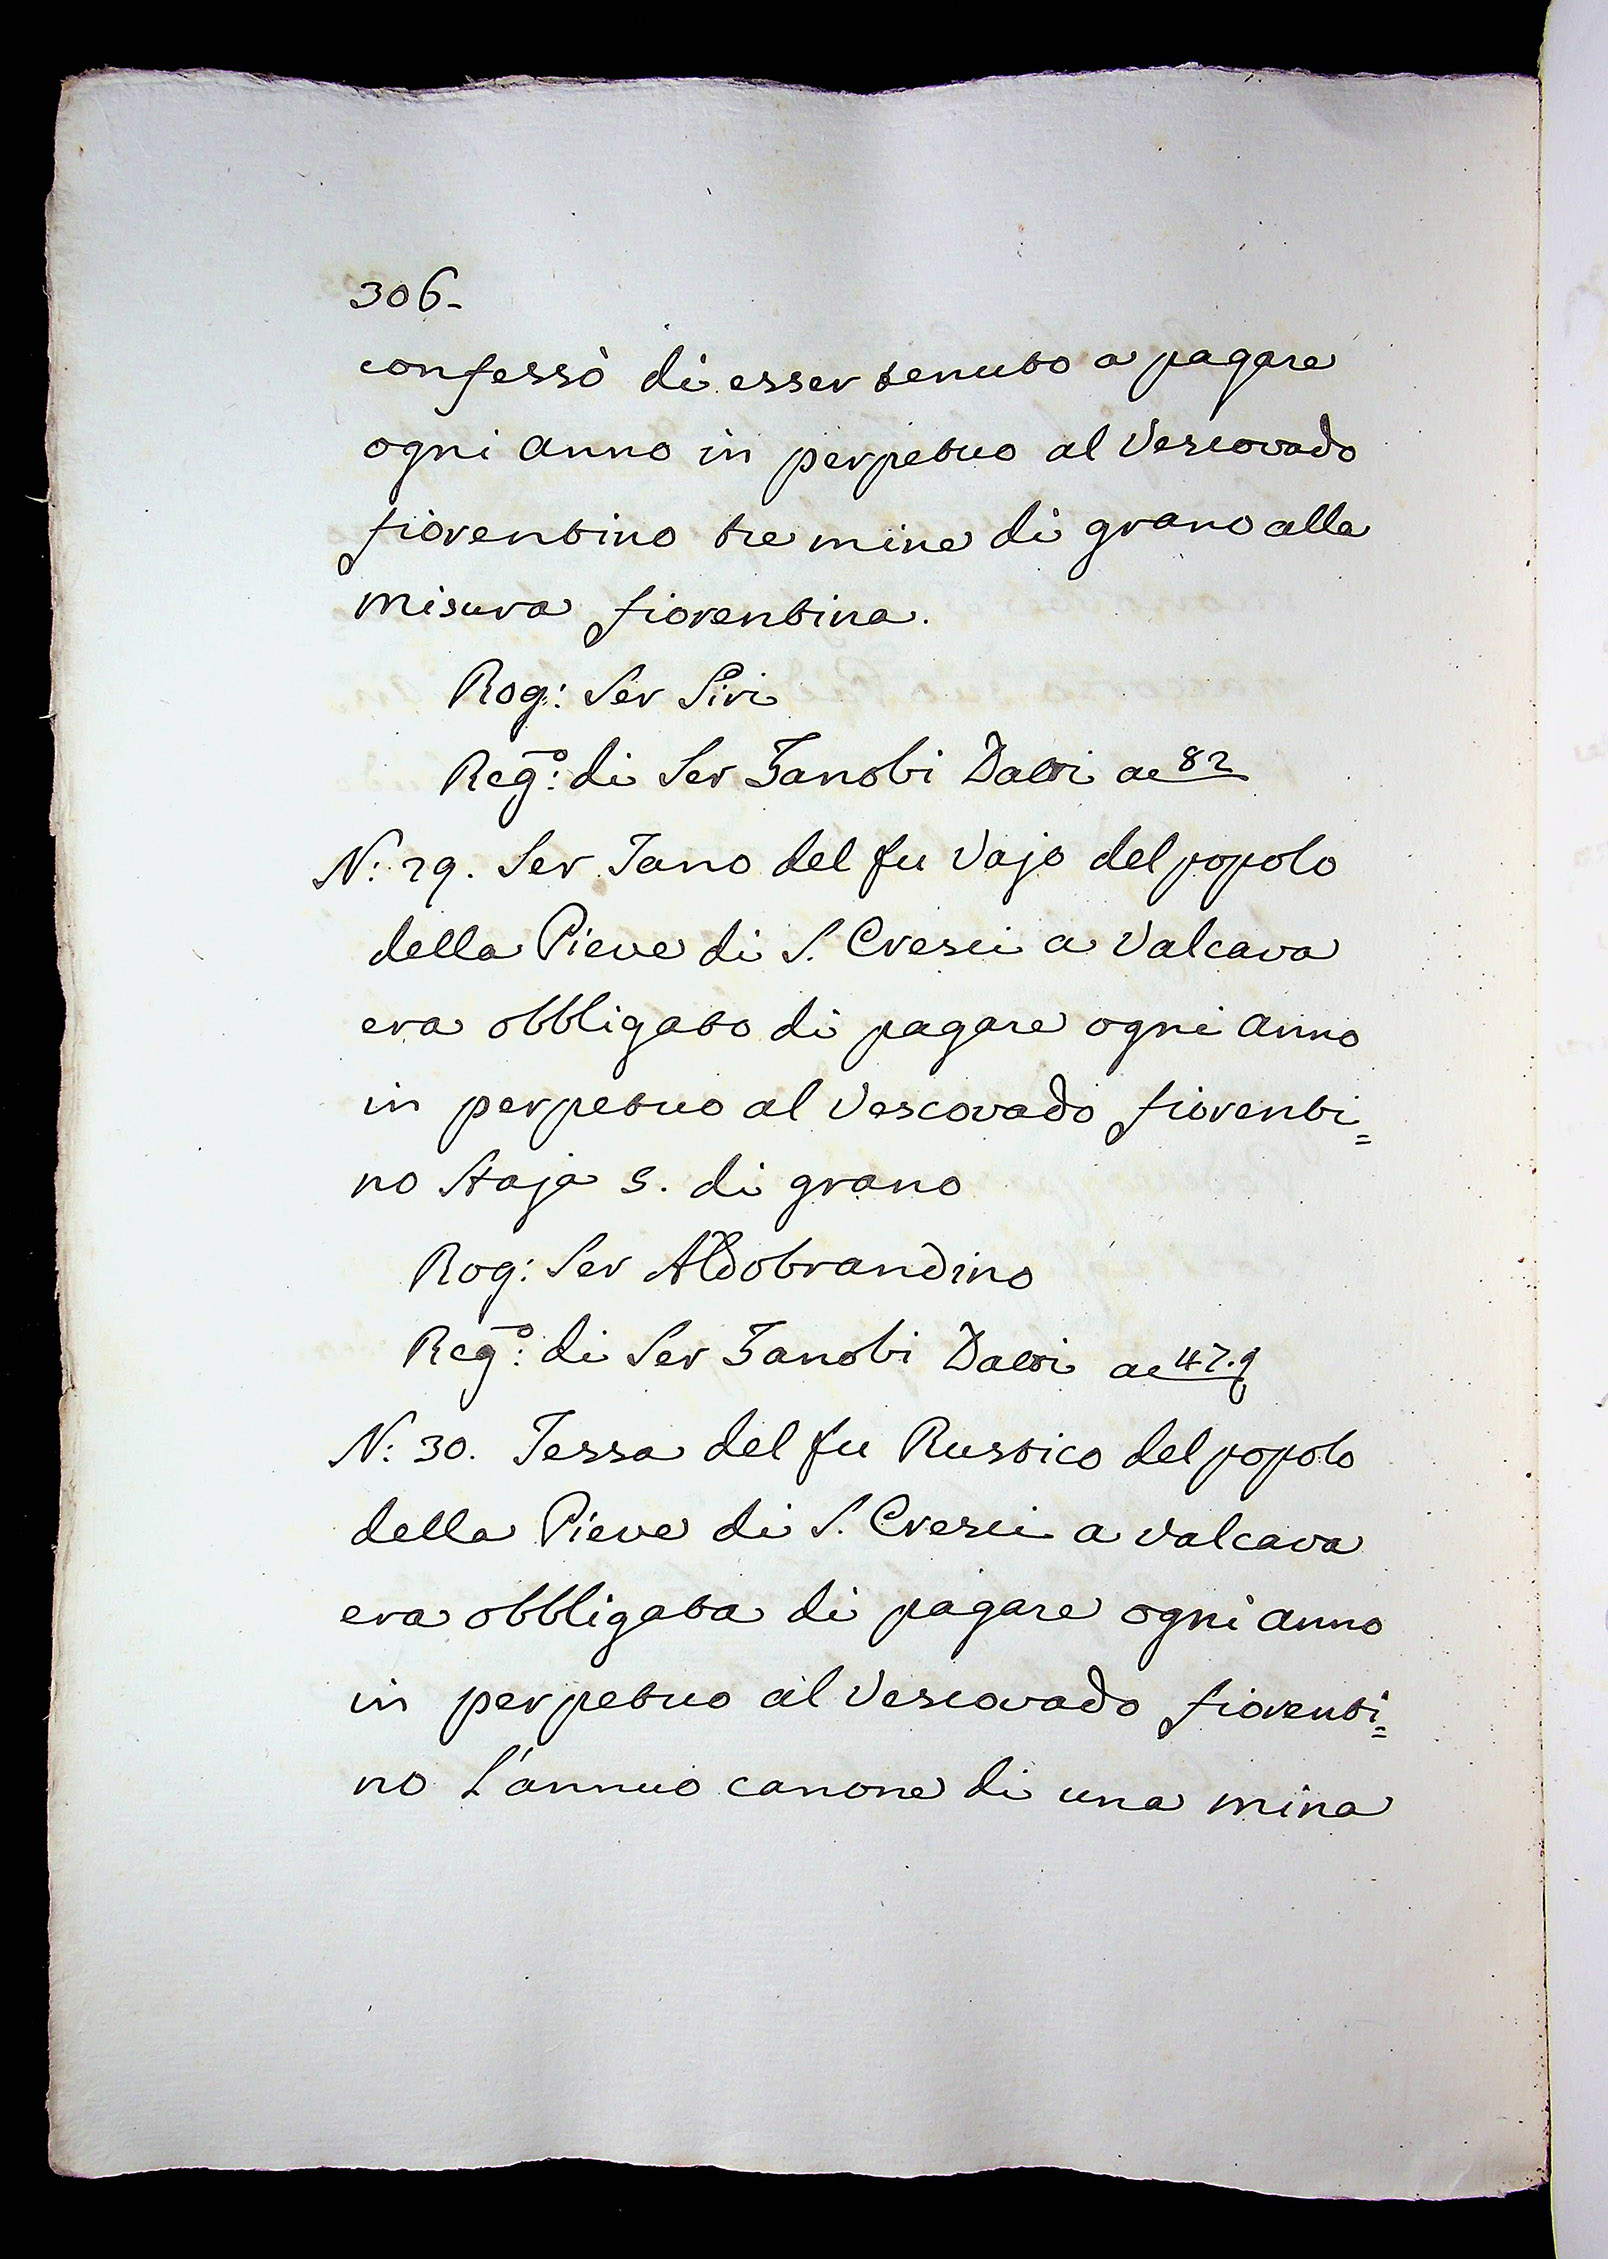 306-
confessò di esser tenuto a pagare
ogni anno in perpetuo al Vescovado
fiorentino tre mine di grano alla
misura fiorentina.
Rog: Ser Siri
Reg:º di Ser Zanobi a 82
N: 29. Ser Tano del fu Vajo del popolo
della Pieve di S. Cresci a Valcava
era obbligato di pagare ogni anno
in perpetuo al Vescovado fiorenti=
no Staja di grano
Rog: Ser Aldobrandino
Reg:º di Ser Zanobi a 47.
N: 30. Tessa del fu Rustico del popolo
della Pieve di S. Cresci a Valcava
era obbligata di pagare ogni anno
in perpetuo al Vescovado fiorenti=
no l'annuo canone di una mina